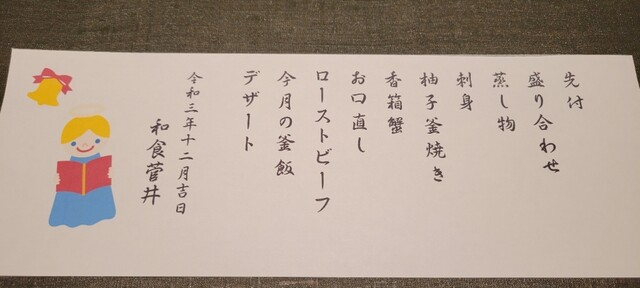 先付
盛り合わせ
蒸し物
刺身
柚子釜焼き
香箱蟹
お口直し
ローストビーフ
今月の釜飯
デザート
令和三年十二月吉日
和食菅井